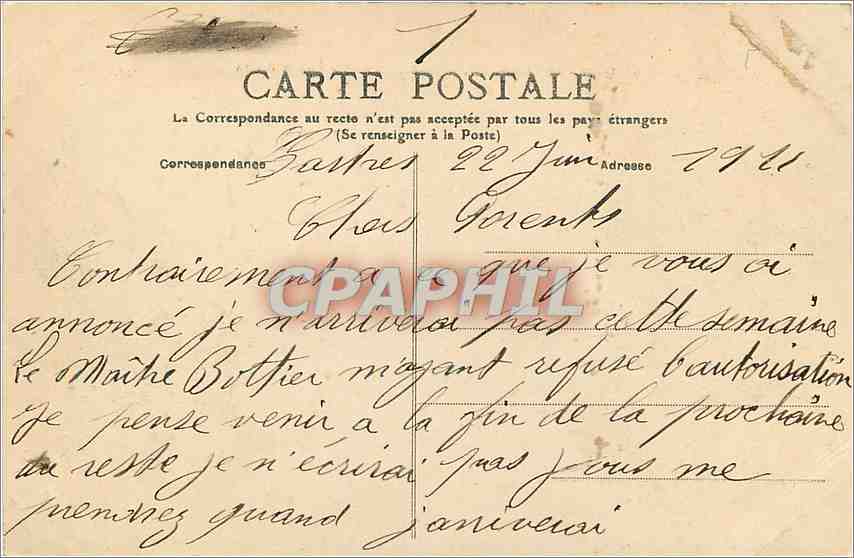 1
CARTE POSTALE
La Correspondance au recto n'est pas acceptée par tous les pays étrangers
(Se renseigner à la Poste)
Correspondance Castres 22 Juin Adresse 1911
Chers Parents
Contrairement a ce que je vous ai
CPAPHIL
annoncé je n'arriverai pas cette semaine
Le Maître Bottier m'ayant refusé l'autorisation
Je pense venir a la fin de la prochaine
du reste je n'écrirai pas vous me
prendrez quand j'arriverai